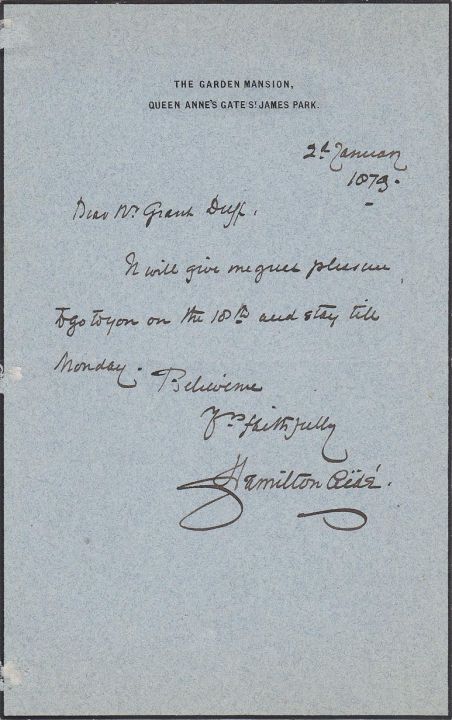 THE GARDEN MANSION,
QUEEN ANNE'S GATE ST JAMES PARK.
2d January
1879.
Dear Mr Grant Duff.
It will give me great pleasure
to go to you on the 18th and stay till
Monday. Believe me
Yrs faithfully
Hamilton Aïdé.